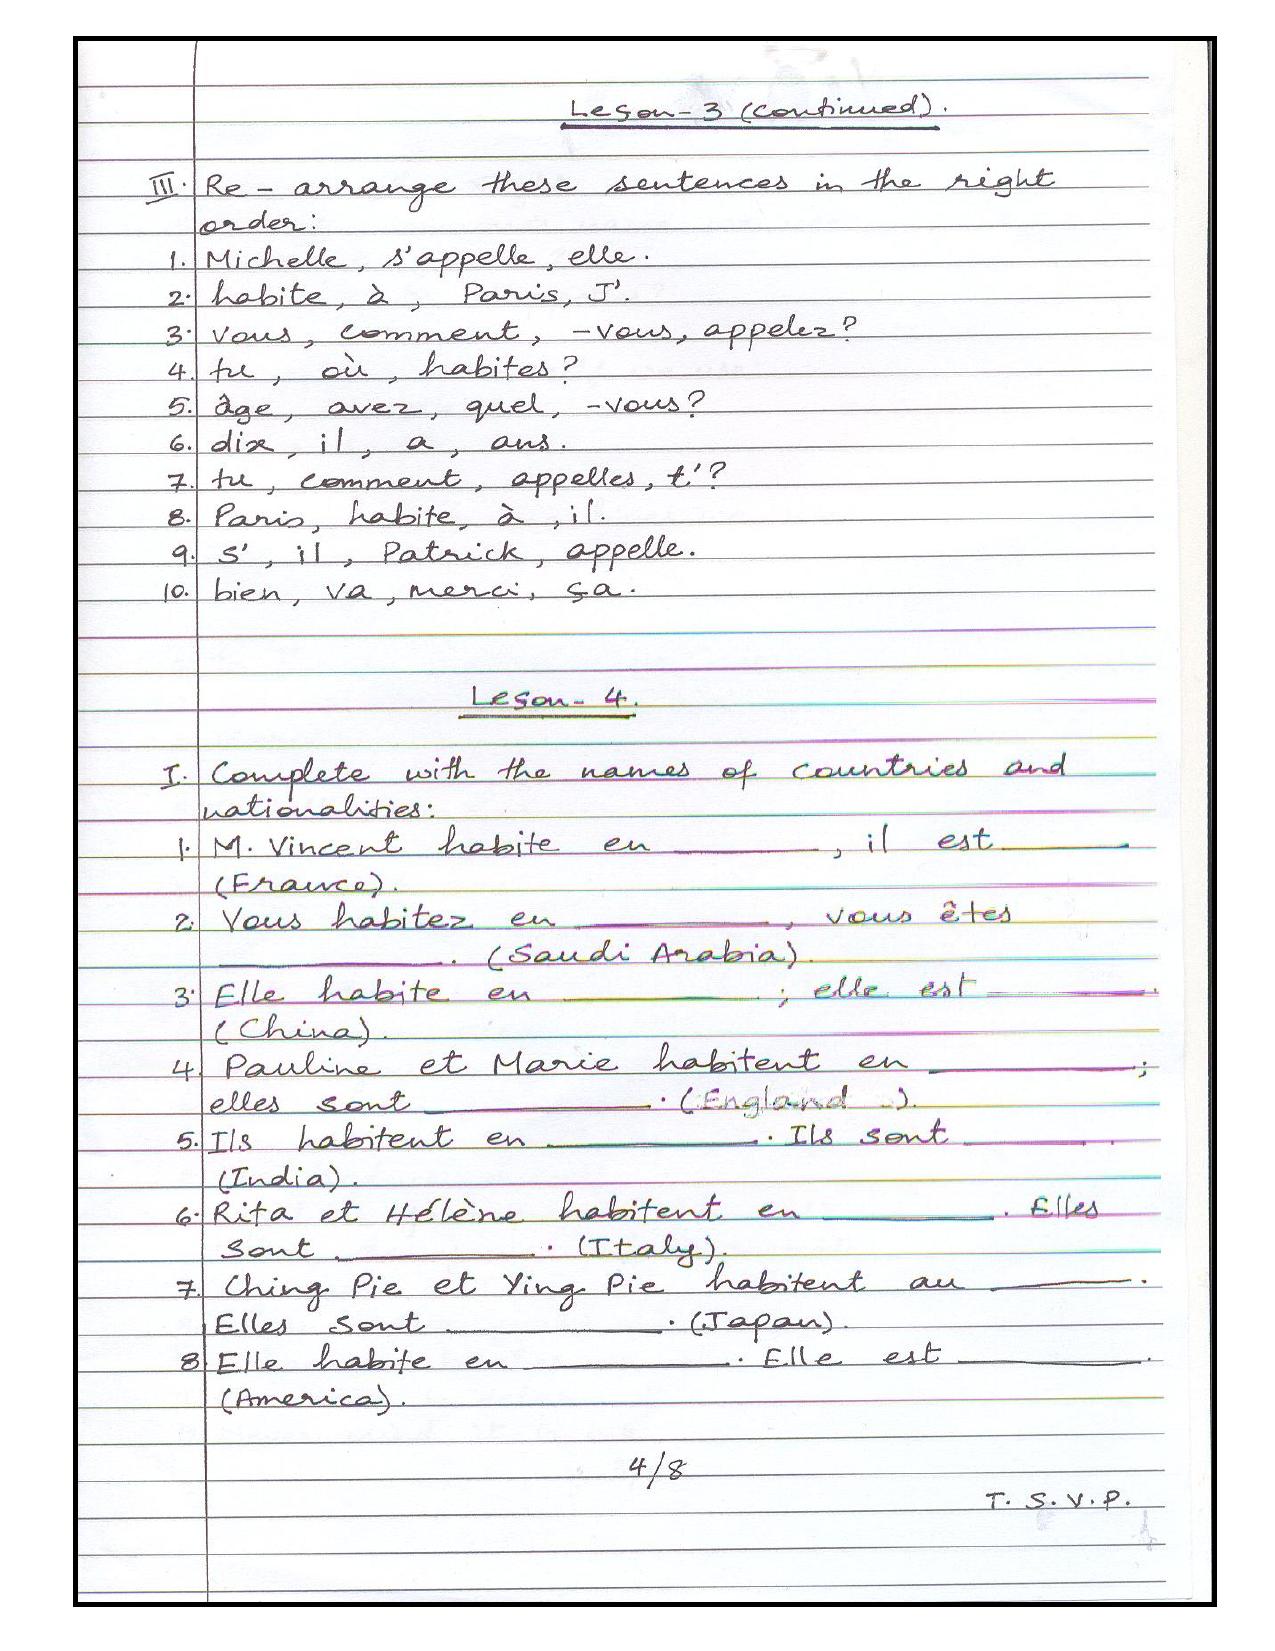 Leçon-3 (continued).
III. Re-arrange these sentences in the right
order:
1. Michelle, s'appelle, elle.
2. habite, à, Paris, J'.
3. vous, comment, -vous, appelez?
4. tu, où, habites?
5. âge, avez, quel, -vous?
6. dix, il, a, ans.
7. tu, comment, appelles, t'?
8. Paris, habite, à, il.
9. s', il, Patrick, appelle.
10. bien, va, merci, ça.
Leçon-4.
I. Complete with the names of countries and
nationalities:
1. M. Vincent habite en ________, il est ________
(France).
2. Vous habitez en ________, vous êtes
________. (Saudi Arabia).
3. Elle habite en ________; elle est ________.
(China).
4. Pauline et Marie habitent en ________;
elles sont ________. (England).
5. Ils habitent en ________. Ils sont ________.
(India).
6. Rita et Hélène habitent en ________. Elles
sont ________. (Italy).
7. Ching Pie et Ying Pie habitent au ________.
Elles sont ________. (Japan).
8 Elle habite en ________. Elle est ________.
(America).
4/8
T. S. V. P.